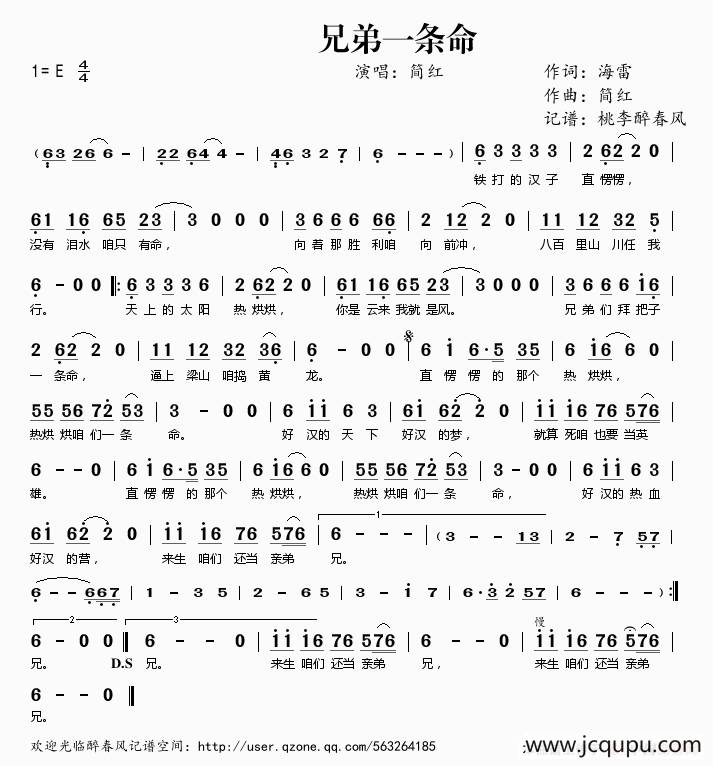 兄弟一条命
1= E 4/4
演唱：简红
作词：海雷
作曲：简红
记谱：桃李醉春风
( 63 26 6 - | 22 64 4 - | 46 3 2 7 | 6 - - - ) | 6 3 3 3 3 | 2 62 2 0 |
铁 打 的 汉 子 直 愣愣，
61 16 65 23 | 3 0 0 0 | 3 6 6 6 66 | 2 12 2 0 | 11 12 32 5 |
没有 泪水 咱只 有命， 向 着 那 胜 利咱 向 前冲， 八百 里山 川任 我
6 - 0 0 ‖: 6 3 3 3 6 | 2 62 2 0 | 61 16 65 23 | 3 0 0 0 | 3 6 6 6 i6 |
行。 天 上 的 太 阳 热 烘烘， 你是 云来 我就 是风。 兄 弟 们 拜 把子
2 62 2 0 | 11 12 32 36 | 6 - 0 0 | 6 i 6·5 35 | 6 i6 6 0 |
一 条命， 逼上 梁山 咱捣 黄 龙。 直 愣 愣 的 那个 热 烘烘，
55 56 72 53 | 3 - 0 0 | 6 ii 6 3 | 6i 62 2 0 | ii i6 76 576 |
热烘 烘咱 们一 条 命。 好 汉的 天 下 好汉 的梦， 就算 死咱 也要 当英
6 - - 0 | 6 i 6·5 35 | 6 i6 6 0 | 55 56 72 53 | 3 - 0 0 | 6 ii 6 3 |
雄。 直 愣 愣 的 那个 热 烘烘， 热烘 烘咱 们一 条 命， 好 汉的 热 血
6i 62 2 0 | ii i6 76 576 | 1 6 - - - | ( 3 - - 13 | 2 - 7 57 |
好汉 的营， 来生 咱们 还当 亲弟 兄。
6 - - 667 | 1 - 3 5 | 2 - 6 5 | 3 - 1 7 | 6·3 2 57 | 6 - - - ) :‖
2 3 慢
6 - 0 0 ‖ 6 - - 0 | ii i6 76 576 | 6 - - 0 | ii i6 76 576 |
兄。 D.S 兄。 来生 咱们 还当 亲弟 兄， 来生 咱们 还当 亲弟
6 - - 0 ‖
兄。
欢迎光临醉春风记谱空间：http://user.qzone.qq.com/563264185
www.jcqupu.com